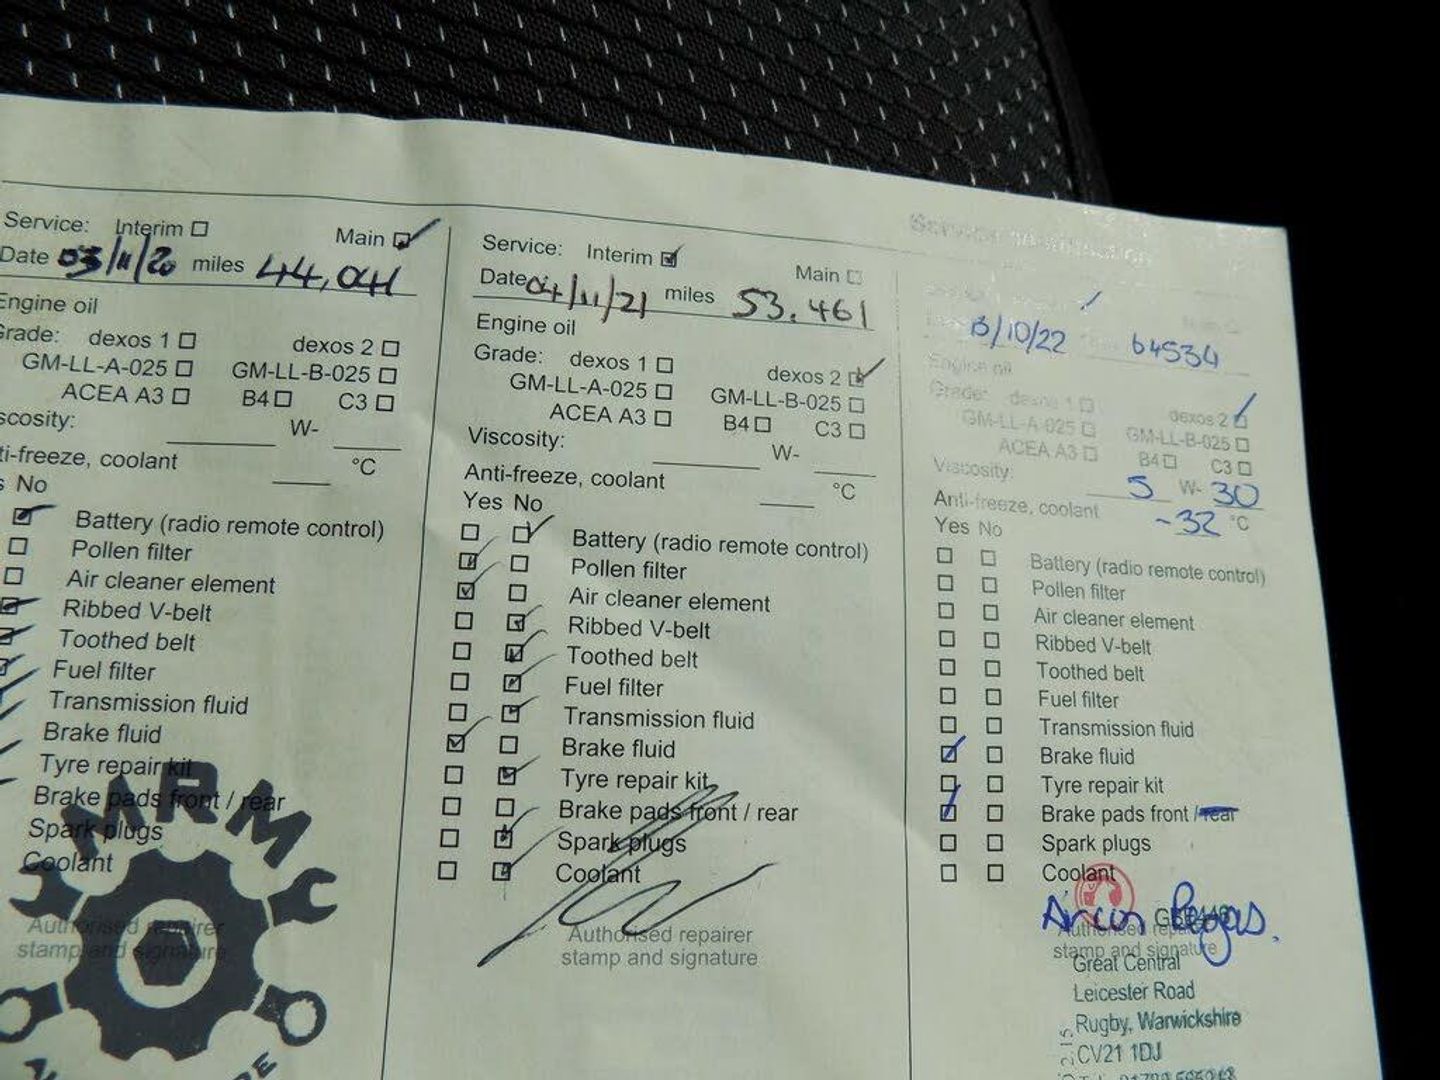 Service: Interim Main
Date 03/11/20 miles 44,041
Engine oil
Grade: dexos 1 dexos 2
GM-LL-A-025 GM-LL-B-025
ACEA A3 B4 C3
scosity: W-
ti-freeze, coolant °C
s No
Battery (radio remote control)
Pollen filter
Air cleaner element
Ribbed V-belt
Toothed belt
Fuel filter
Transmission fluid
Brake fluid
Tyre repair kit
Brake pads front / rear
Spark plugs
Coolant
MRM
Authorised repairer
stamp and signature
Service: Interim Main
Date 04/11/21 miles 53,461
Engine oil
Grade: dexos 1 dexos 2
GM-LL-A-025 GM-LL-B-025
ACEA A3 B4 C3
Viscosity: W-
Anti-freeze, coolant °C
Yes No
Battery (radio remote control)
Pollen filter
Air cleaner element
Ribbed V-belt
Toothed belt
Fuel filter
Transmission fluid
Brake fluid
Tyre repair kit
Brake pads front / rear
Spark plugs
Coolant
Authorised repairer
stamp and signature
Service
13/10/22 64534
Engine oil
Grade: dexos 1 dexos 2
GM-LL-A-025 GM-LL-B-025
ACEA A3 B4 C3
Viscosity: 5 W- 30
Anti-freeze, coolant -32 °C
Yes No
Battery (radio remote control)
Pollen filter
Air cleaner element
Ribbed V-belt
Toothed belt
Fuel filter
Transmission fluid
Brake fluid
Tyre repair kit
Brake pads front / rear
Spark plugs
Coolant
Authorised
stamp and signature
Great Central
Leicester Road
Rugby, Warwickshire
CV21 1DJ